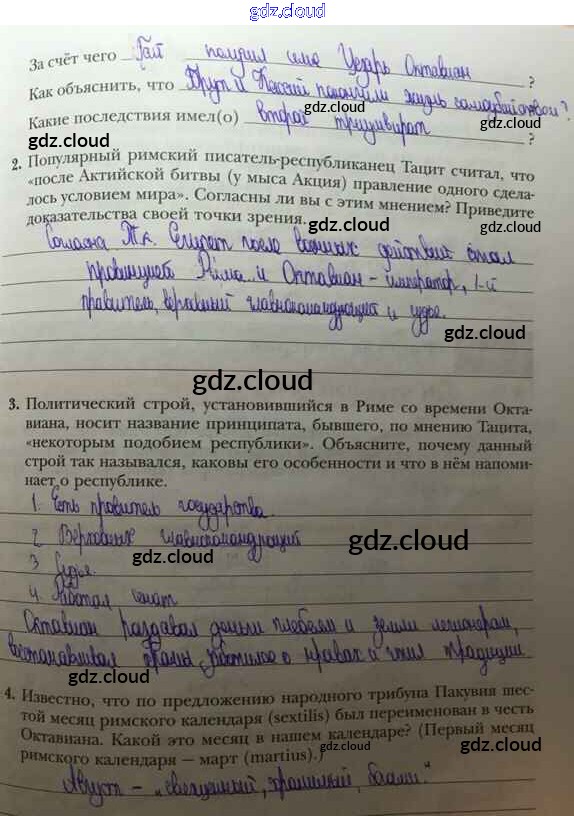 gdz.cloud
gdz.cloud
За счёт чего Гай получил имя Цезарь Октавиан ?
Как объяснить, что Брут и Кассий покончили жизнь самоубийством?
gdz.cloud
Какие последствия имел(о) второй триумвират ?
gdz.cloud
2. Популярный римский писатель-республиканец Тацит считал, что
«после Актийской битвы (у мыса Акция) правление одного сдела-
лось условием мира». Согласны ли вы с этим мнением? Приведите
доказательства своей точки зрения.
gdz.cloud
Согласна т.к. Египет после военных действий стал
провинцией Рима и Октавиан - император, 1-й
правитель, верховный главнокомандующий и судья.
gdz.cloud
gdz.cloud
3. Политический строй, установившийся в Риме со времени Окта-
виана, носит название принципата, бывшего, по мнению Тацита,
«некоторым подобием республики». Объясните, почему данный
строй так назывался, каковы его особенности и что в нём напоми-
нает о республике.
1. Есть правитель государства
2. Верховный главнокомандующий
gdz.cloud
3 Судья
gdz.cloud
4. Работал сенат
Октавиан раздавал деньги плебеям и земли легионерам,
восстанавливал храмы, заботился о нравах и чтил традиции
gdz.cloud
4. Известно, что по предложению народного трибуна Пакувия шес-
той месяц римского календаря (sextilis) был переименован в честь
Октавиана. Какой это месяц в нашем календаре? (Первый месяц
римского календаря — март (martius).)
gdz.cloud
Август - "священный, хранимый, богами"
gdz.cloud